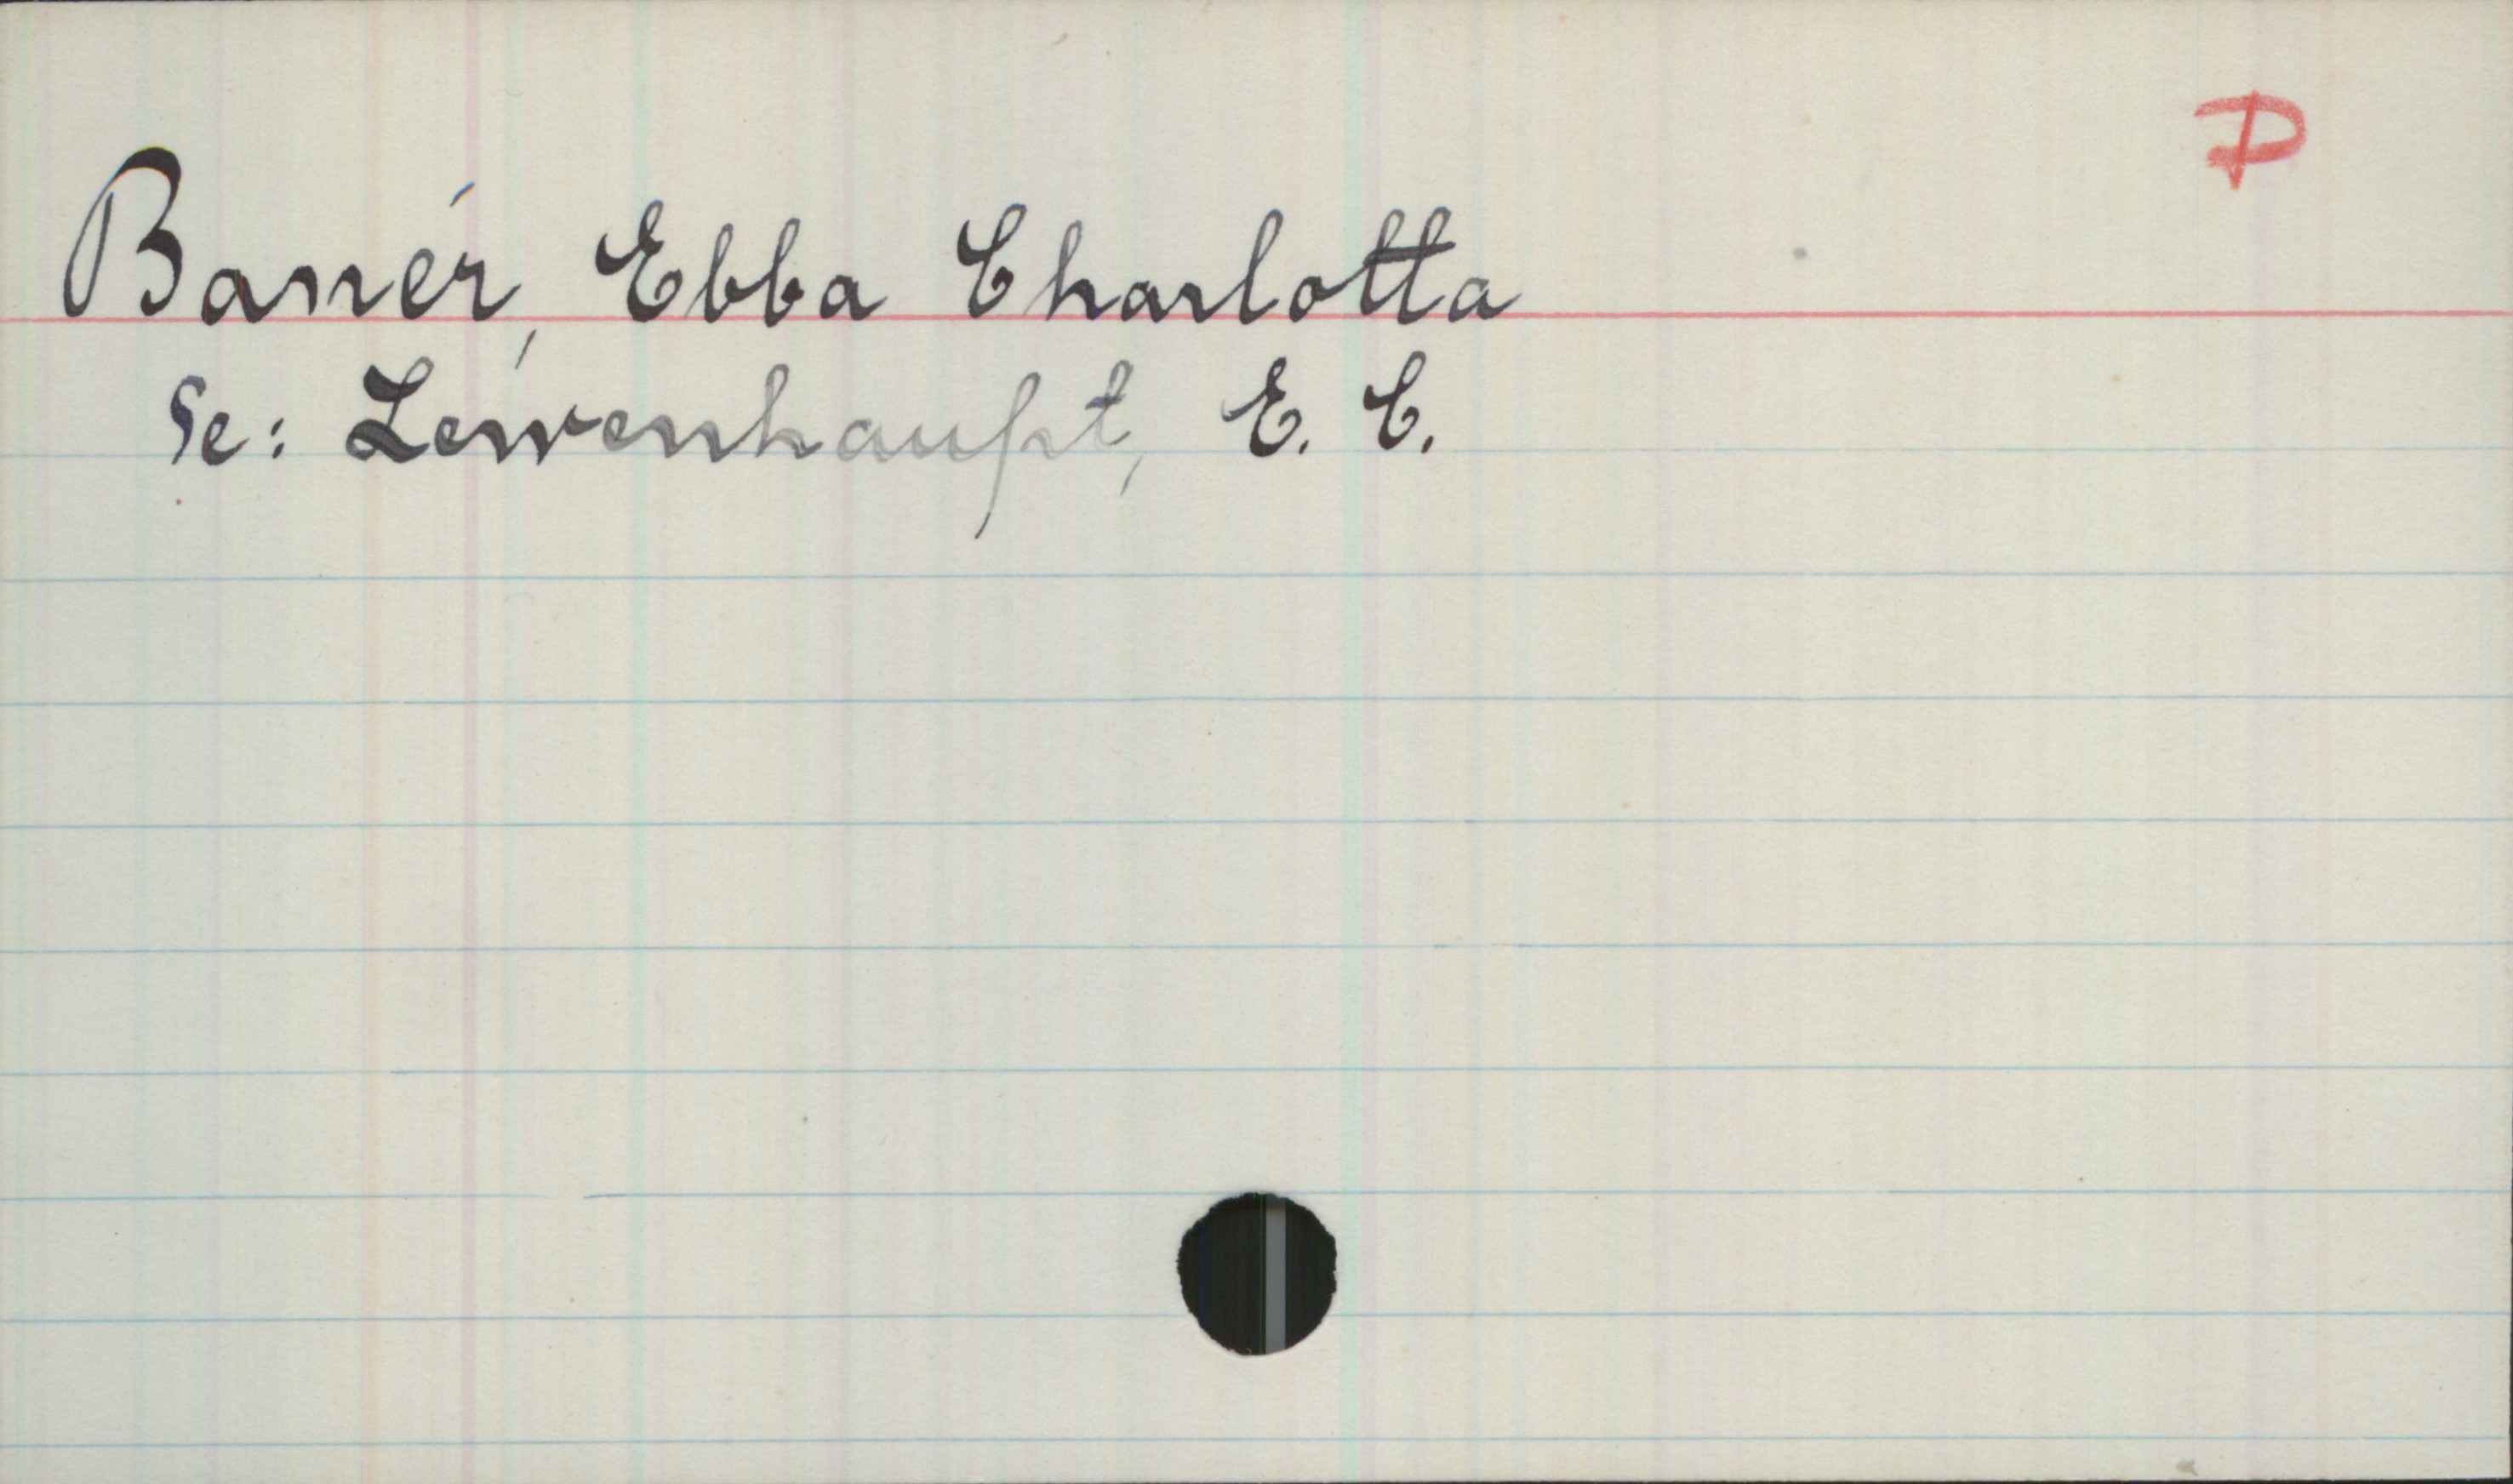 D
Banér, Ebba Charlotta
Se: Lewenhaupt, E. C.